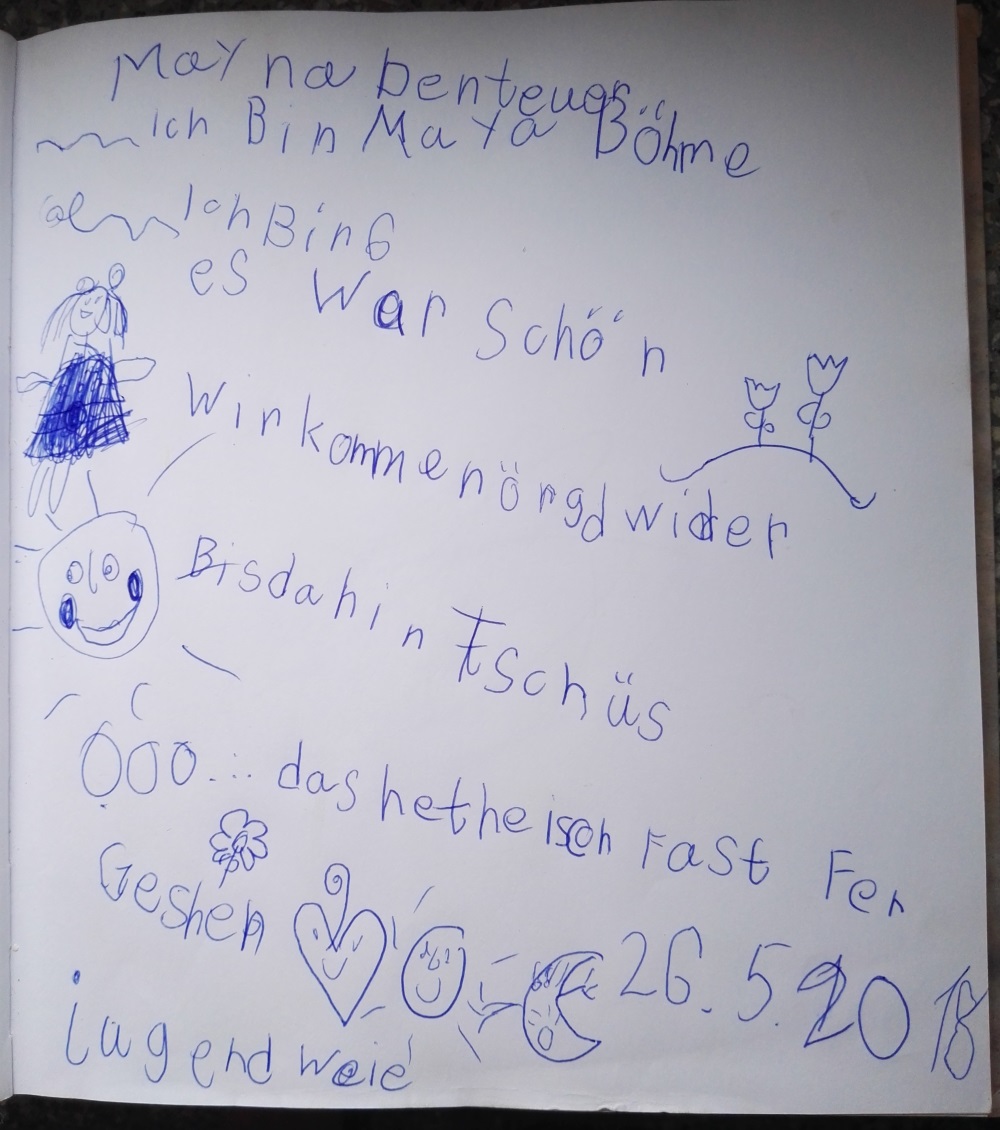 May na benteuer
Ich Bin Maya Böhme
Ich Bin 6
es war Schön
Wir kommen örgd wider
Bis dahin Tschüs
Ooo... das het he isch rast Fer
Geshen
26.5.2018
iugendweie